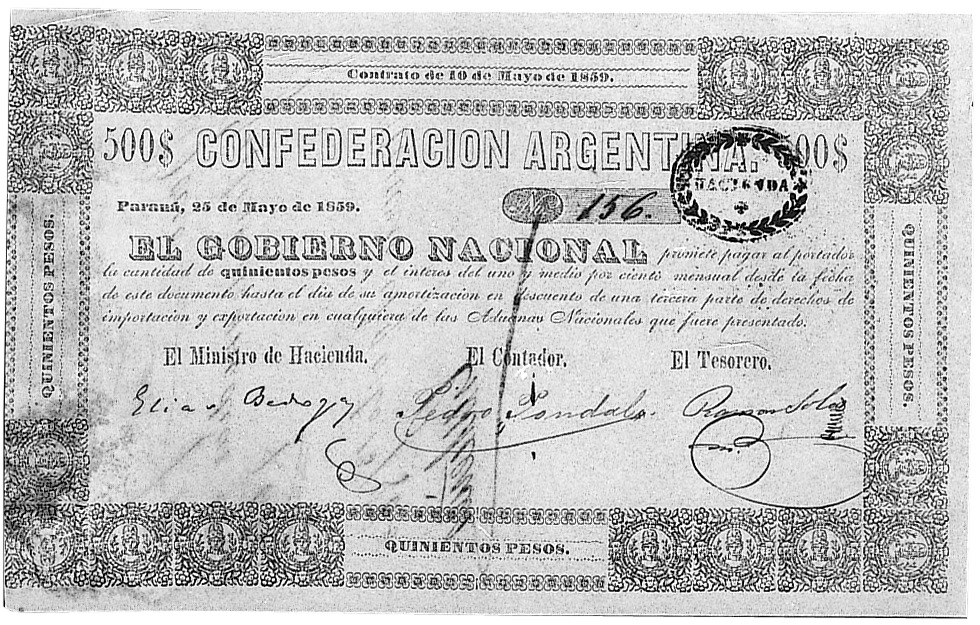 Contrato de 10 de Mayo de 1859.
500$ CONFEDERACION ARGENTINA. 500$
HACIENDA
Paraná, 25 de Mayo de 1859.
N 156.
EL GOBIERNO NACIONAL promete pagar al portador
la cantidad de quinientos pesos y el interes del uno y medio por ciento mensual desde la fecha
de este documento hasta el dia de su amortizacion en descuento de una tercera parte de derechos de
importacion y exportacion en cualquiera de las Aduanas Nacionales que fuere presentado.
El Ministro de Hacienda, El Contador, El Tesorero.
Elias Bedoya Pedro Pondal Ramon Solá
QUINIENTOS PESOS.
QUINIENTOS PESOS.
QUINIENTOS PESOS.